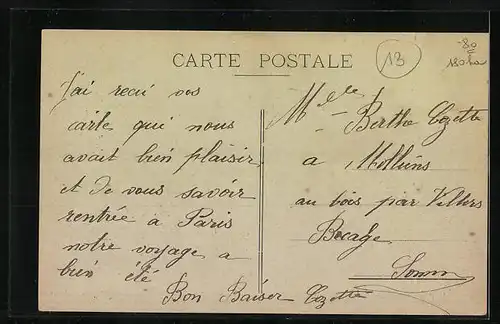 CARTE POSTALE
13
J'ai recu vos
carte qui nous
avait bien plaisir
et de vous savoir
rentrée à Paris
notre voyage a
bien été
Bon Baiser Cozette
Mlle
Berthe Cozette
a Molliens
au bois par Villers
Bocage
Somme